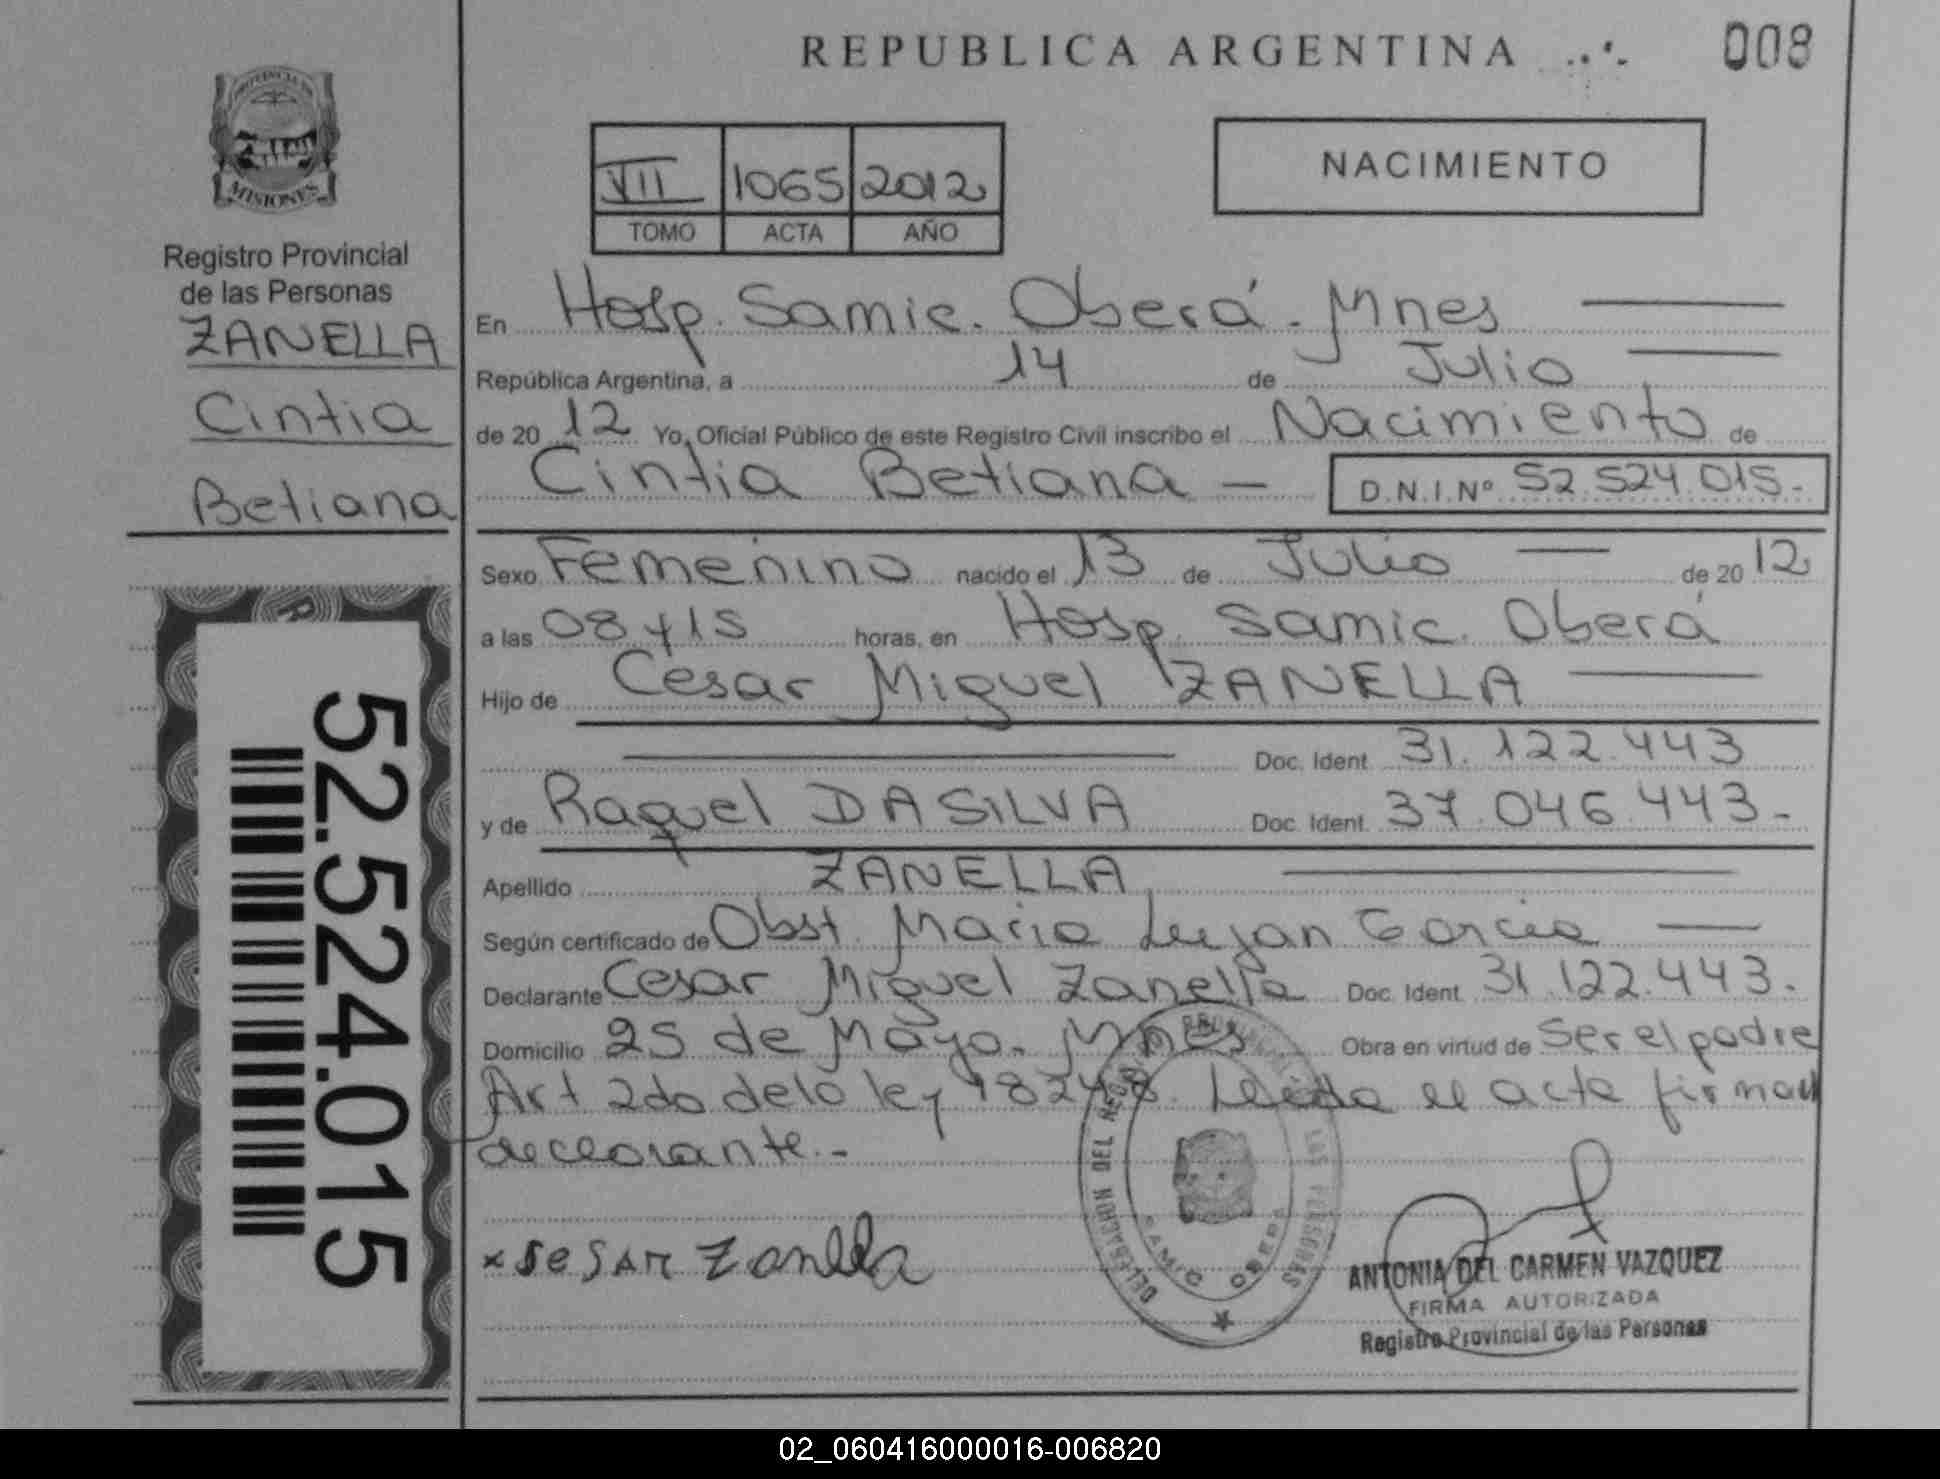 REPUBLICA ARGENTINA
008
PROVINCIA DE
MISIONES
Registro Provincial
de las Personas
ZANELLA
Cintia
Betiana
52.524.015
VII 1065 2012
TOMO ACTA AÑO
NACIMIENTO
En Hosp. Samic. Oberá. Mnes
República Argentina, a 14 de Julio
de 20 12 Yo, Oficial Público de este Registro Civil inscribo el Nacimiento de
Cintia Betiana — D.N.I.Nº 52.524.015.-
Sexo Femenino nacido el 13 de Julio — de 20 12
a las 08 y 15 horas, en Hosp. Samic. Oberá
Hijo de Cesar Miguel ZANELLA
Doc. Ident. 31.122.443
y de Raquel DA SILVA Doc. Ident. 37.046.443.-
Apellido ZANELLA
Según certificado de Obst. Maria Lujan Garcia
Declarante Cesar Miguel Zanella Doc. Ident. 31.122.443.
Domicilio 25 de Mayo. Mnes Obra en virtud de Ser el padre
Art 2do de la ley 18248. Leida el acta firma el
declarante.-
x SeSAR Zanella
DELEGACION DEL REGISTRO PROVINCIAL DE LAS PERSONAS
SAMIC OBERA
ANTONIA DEL CARMEN VAZQUEZ
FIRMA AUTORIZADA
Registro Provincial de las Personas
02_060416000016-006820